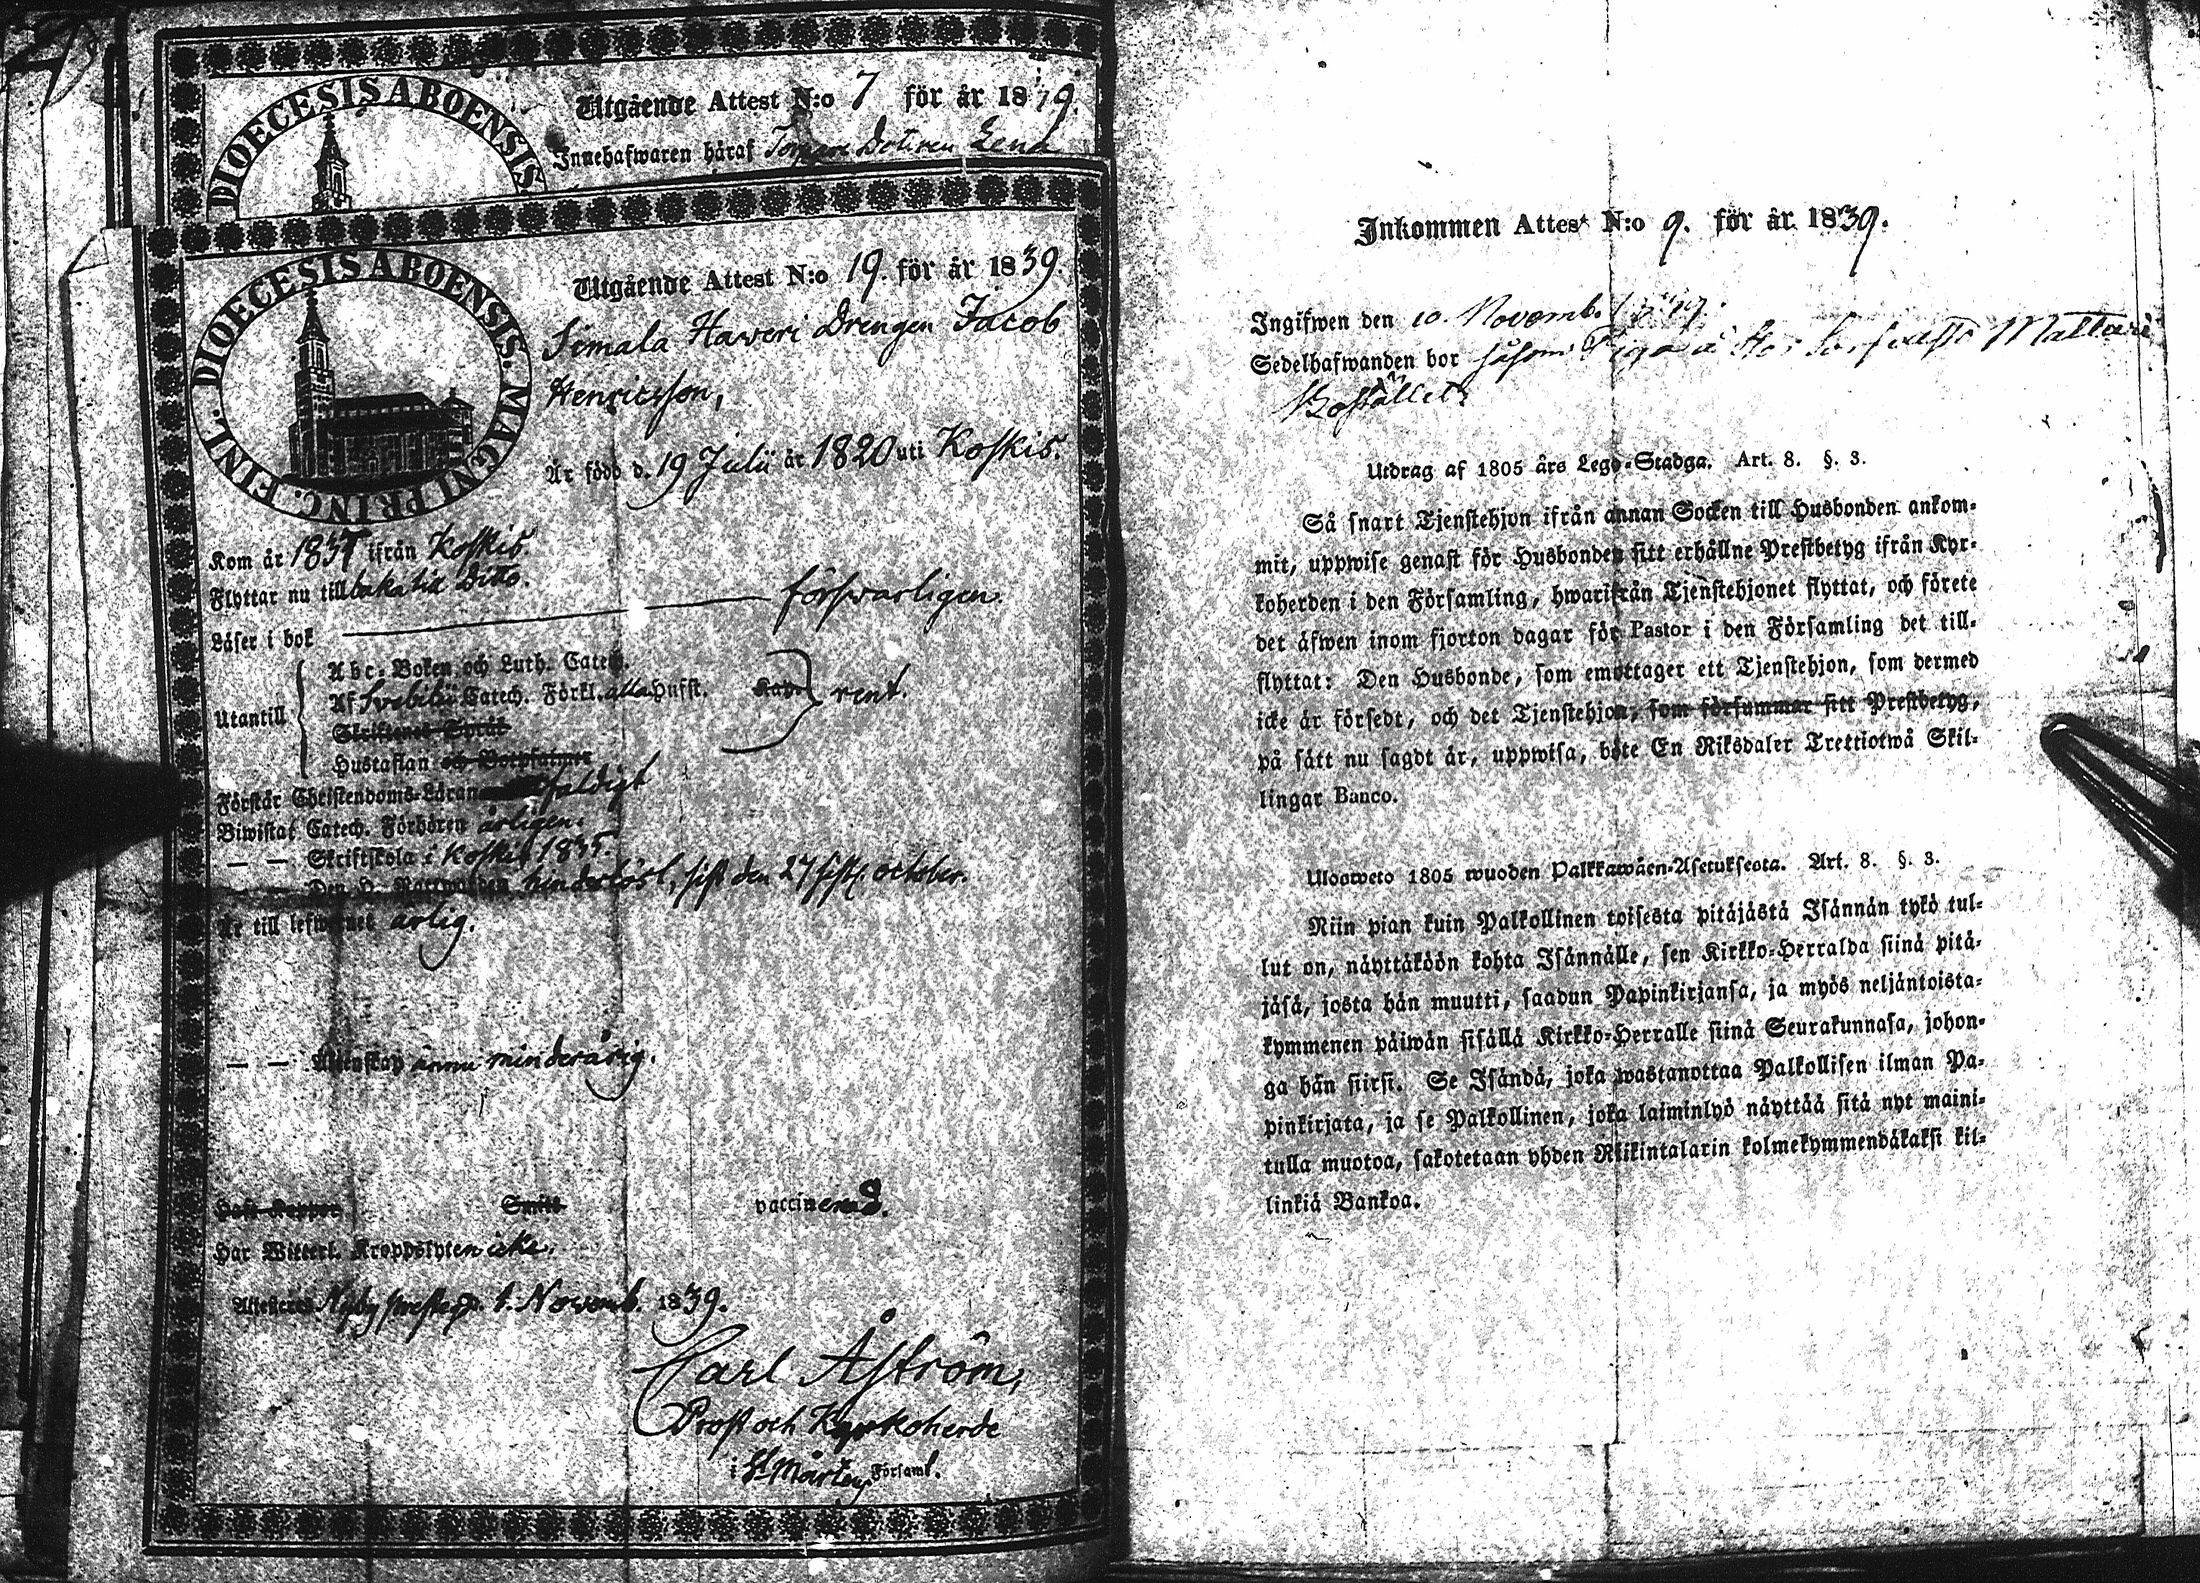 DIOECESIS ABOENSIS.
Utgående Attest N:o 7 för år 1879.
Innehafwaren häraf
DIOECESIS ABOENSIS. MAGNI PRINC. FINL.
Utgående Attest N:o 19. för år 1839.
Simala Haweri Drengen Jacob
Henricsson,
Är född d. 19 Julii år 1820 uti Koskis.
Kom år 1837 ifrån Koskis.
Flyttar nu till baka till Ditto.
Läser i bok försvarligen.
Utantill
Abc-Boken och Luth. Catech.
Af Svebilii Catech. Förkl. alla Hufst. rent.
Skriftenes Språk
Hustaflan och Botpsalmer
Förstår Christendoms-Läran faldigt
Biwistat Catech. Förhören årligen.
— — Skriftskola i Koskis 1835.
Den H. Nattwarden hinderlöst, sist den 27 sistl. october.
Är till lefwernet ärlig.
— — Äktenskap ännu minderårig.
Haft Koppor Smitt vaccinerad.
Har Witterl. Kroppslyten icke.
Attesteras Nyby presteg. 1. Novemb. 1839.
Carl Åström,
Prost och Kyrkoherde
i St Mårtens Förstaml.
Inkommen Attest N:o 9. för år 1839.
Ingifwen den 10. Novemb.
Sedelhafwanden bor såsom Piga å Mattari
Bostället
Utdrag af 1805 års Lego-Stadga. Art. 8. §. 3.
Så snart Tjenstehjon ifrån annan Socken till Husbonden ankom-
mit, uppwise genast för Husbonden sitt erhållne Prestbetyg ifrån Kyr-
koherden i den Församling, hwarifrån Tjenstehjonet flyttat, och förete
det äfwen inom fjorton dagar för Pastor i den Församling det till-
flyttat: Den Husbonde, som emottager ett Tjenstehjon, som dermed
icke är försedt, och det Tjenstehjon, som försummar sitt Prestbetyg,
på sätt nu sagdt är, uppwisa, böte En Riksdaler Trettiotwå Skil-
lingar Banco.
Ulosweto 1805 wuoden Palkkawäen-Asetuksesta. Art. 8. §. 3.
Niin pian kuin Palkollinen toisesta pitäjästä Isännän tykö tul-
lut on, näyttäköön kohta Isännälle, sen Kirkko-Herralda siinä pitä-
jäsä, josta hän muutti, saadun Papinkirjansa, ja myös neljäntoista-
kymmenen päiwän sisällä Kirkko-Herralle siinä Seurakunnasa, johon-
ga hän siirsi. Se Isändä, joka wastanottaa Palkollisen ilman Pa-
pinkirjata, ja se Palkollinen, joka laiminlyö näyttää sitä nyt maini-
tulla muotoa, sakotetaan yhden Riikintalarin kolmekymmendäkaksi kil-
linkiä Bankoa.